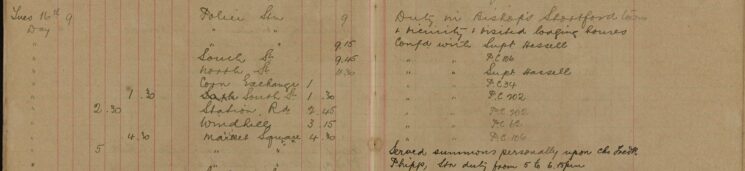 Tues 16th 9 Police Stn 9 Duty in Bishop's Stortford town
Day " " & vicinity & visited lodging houses
" " " 9.15 Confd with Supt Hassell
" South St 9.45 " " P.C 106
" North St 11.30 " " Supt Hassell
" Corn Exchange 1 " " P.C 34
" 1.30 South St 1.30 " " P.C 202
" 2.30 Station Rd 2.45 " " P.C 202
" Windhill 3.15 " " P.C 62
" 4.30 Market Square 4.30 " " P.C 106
" 5 " " Served summons personally upon Chs
" Phipp, Stn duty from 5 to 6.15pm